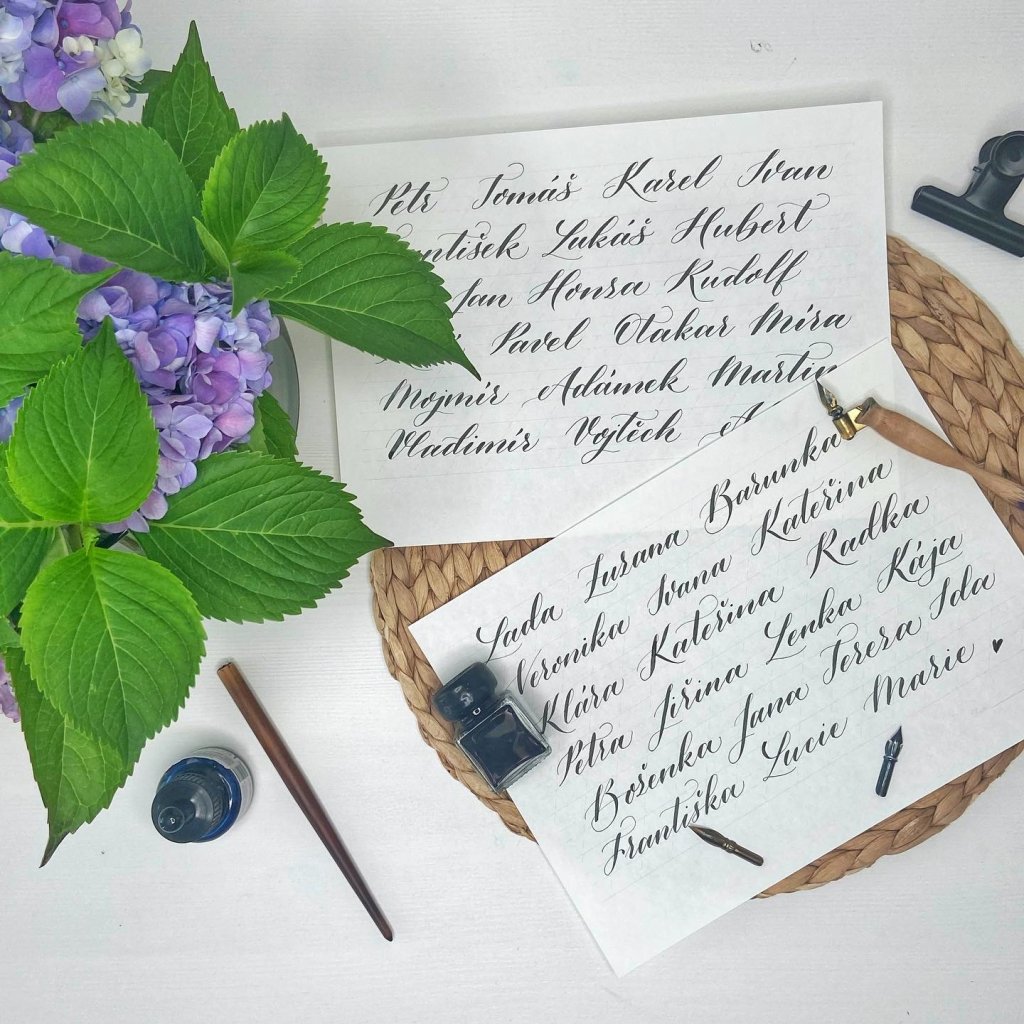 Petr Tomáš Karel Ivan
Lukáš Hubert
Jan Honza Rudolf
Pavel Otakar Míra
Mojmír Adámek Martin
Vladimír Vojtěch
Lada Zuzana Barunka
Veronika Ivana Kateřina
Klára Kateřina Radka
Petra Jiřina Lenka Kája
Boženka Jana Tereza Ida
Františka Lucie Marie ♥